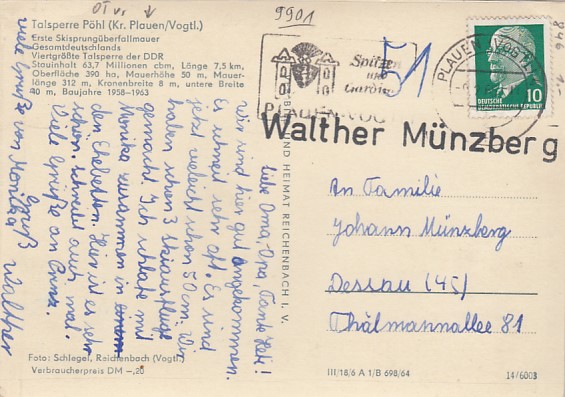 OT vr. ↓
9901
846
1.-
Talsperre Pöhl (Kr. Plauen/Vogtl.)
Erste Skisprungüberfallmauer
Gesamtdeutschlands
Viertgrößte Talsperre der DDR
Stauinhalt 63,7 Millionen cbm, Länge 7,5 km,
Oberfläche 390 ha, Mauerhöhe 50 m, Mauer-
länge 312 m, Kronenbreite 8 m, untere Breite
40 m, Baujahre 1958–1963
Spitzen
und
Gardinen
PLAUEN-VOGTL
51
PLAUEN (VOGTL)
10
DEUTSCHE
DEMOKRATISCHE REPUBLIK
Walther Münzberg
Liebe Oma, Ona, Tante Heti!
Wir sind hier gut angekommen.
Es schneit sehr oft. Es sind
jetzt vielleicht schon 50 cm. Wir
haben schon 3 Skiausflüge
gemacht. Ich schlafe mit
Monika zusammen in
den Ehebetten. Hier ist es sehr
schön. Schreibt auch mal.
Viele Grüße an
Euer Walther
viele Grüße von Monika
UND HEIMAT REICHENBACH I. V.
An Familie
Johann Münzberg
Dessau (45)
Thälmannallee 81
Foto: Schlegel, Reichenbach (Vogtl.)
Verbraucherpreis DM –,20
III/18/6 A 1/B 698/64
14/6003